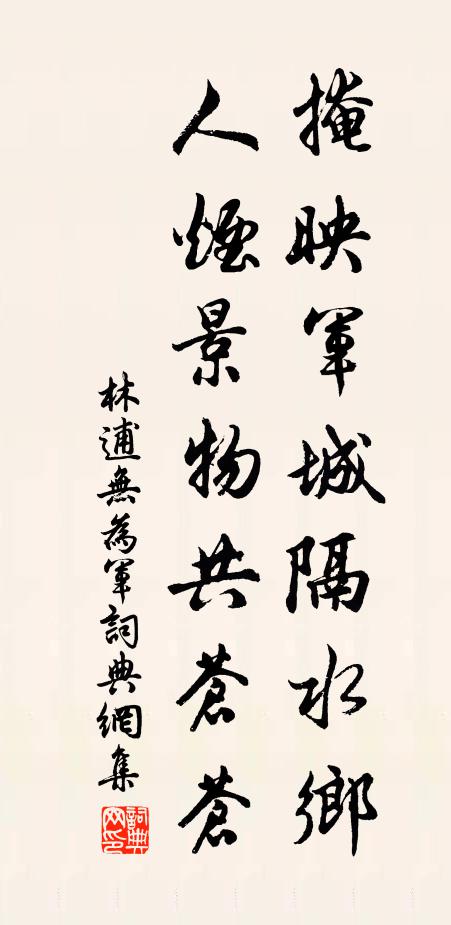 掩映軍城隔水鄉
人煙景物共蒼蒼
林逋無為軍詞典網集
詞典網印